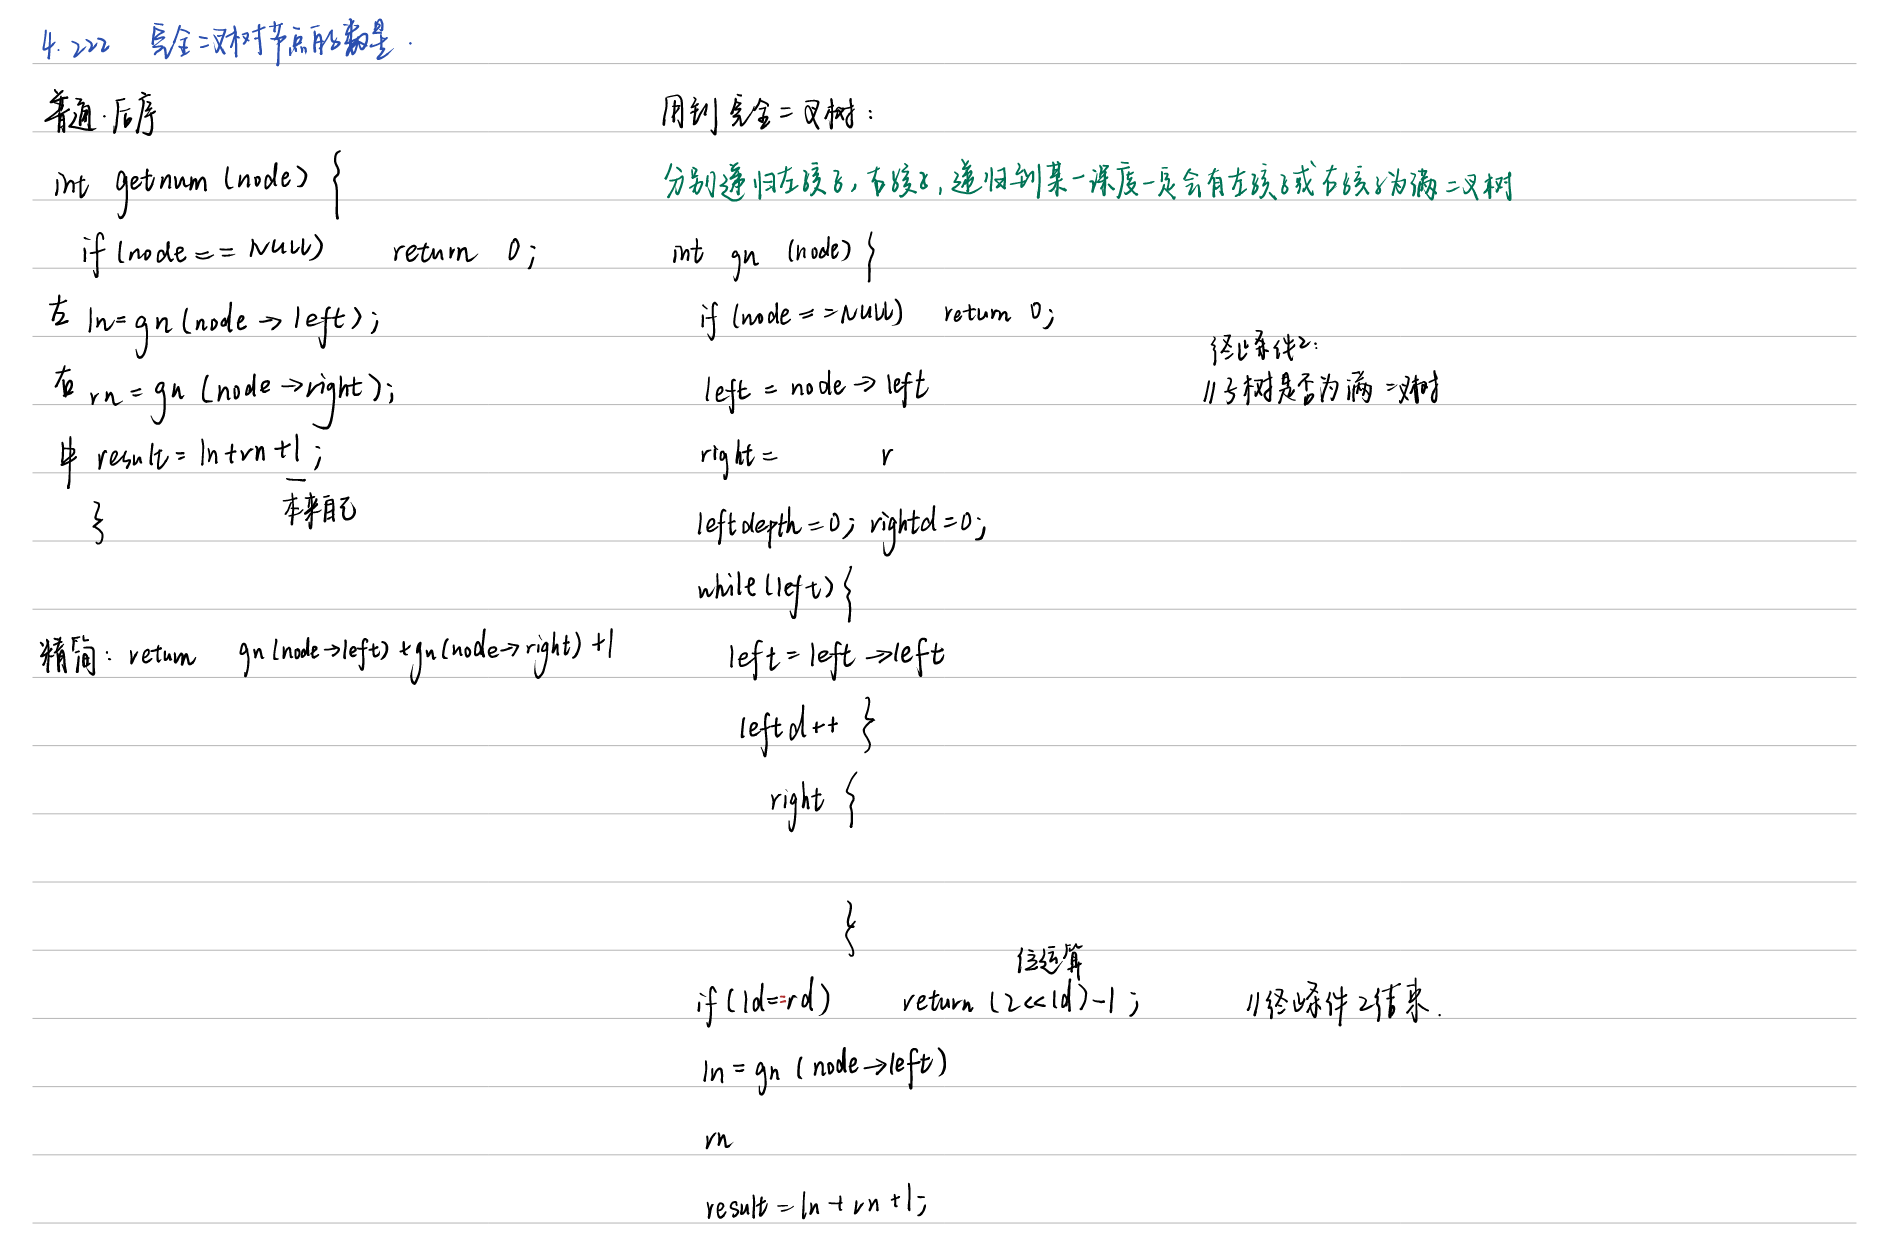 4. 222 完全二叉树节点的数量.
普通·后序
int getnum (node) {
if (node == NULL) return 0;
左 ln = gn (node → left);
右 rn = gn (node → right);
中 result = ln + rn + 1;
本来自己
}
精简: return gn (node → left) + gn (node → right) + 1
用到完全二叉树:
分别递归左孩子, 右孩子, 递归到某一深度一定会有左孩子或右孩子为满二叉树
int gn (node) {
if (node == NULL) return 0;
终止条件2:
left = node → left //子树是否为满二叉树
right = r
leftdepth = 0; rightd = 0;
while (left) {
left = left → left
leftd++ }
right {
}
位运算
if (ld == rd) return (2<<ld) - 1; //终止条件2结束.
ln = gn (node → left)
rn
result = ln + rn + 1;